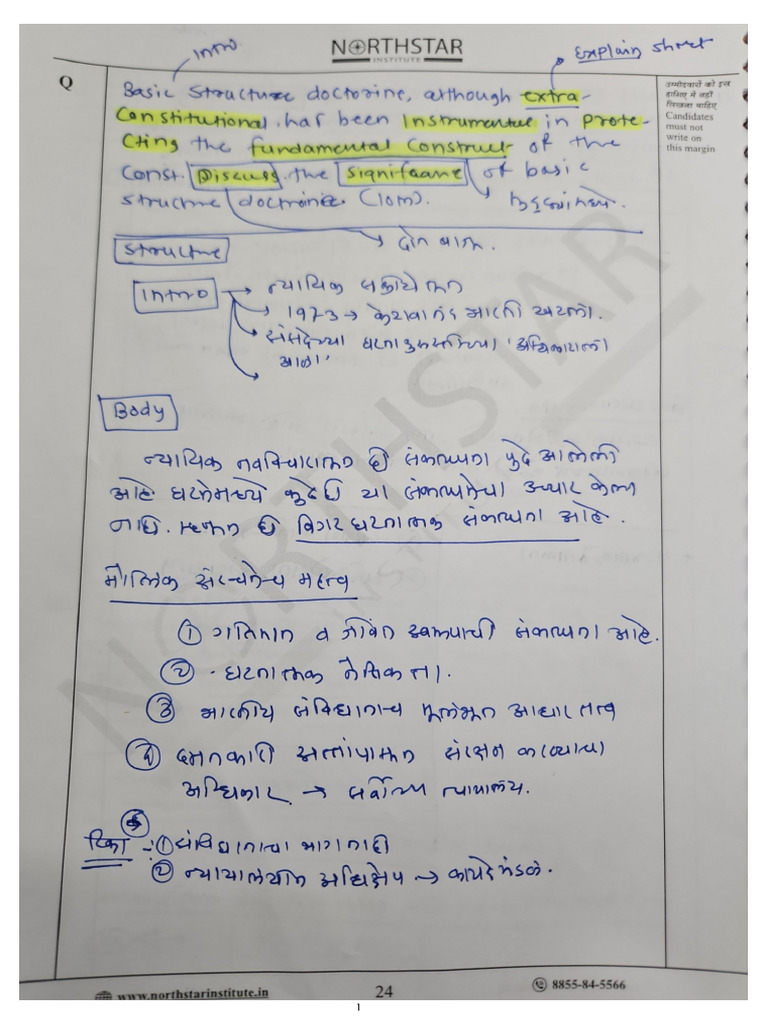 Intro
NORTHSTAR
INSTITUTE
Explain short
Q
Basic Structure doctorine, although extra-
Constitutional has been Instrumental in prote-
cting the fundamental Construct of the
Const. Discuss the significance of basic
structure doctorine. (10m).
दोन बाजू.
उम्मीदवारों को इस
हाशिए में नहीं
लिखना चाहिए
Candidates
must not
write on
this margin
Structure
Intro → न्यायिक
1973 → केशवानंद भारती खटला.
संसदेच्या घटनादुरुस्तीच्या 'अधिकाराला
आळा'
Body
न्यायिक नवविचारातून ही संकल्पना पुढे आलेली
आहे घटनेमध्ये कुठेही या संकल्पनेचा उच्चार केला
नाही. म्हणून ही बिगर घटनात्मक संकल्पना आहे.
मौलिक संरचनेचे महत्व
① गतिमान व जीवंत स्वरूपाची संकल्पना आहे.
② घटनात्मक नैतिकता.
③ भारतीय संविधानाचे मूलभूत आधार तत्व
④ दमनकारी संरक्षण करण्याचा
अधिकार → सर्वोच्च न्यायालय.
टिका :- ① संविधानाचा भाग नाही
② न्यायालयीन अधिक्षेप → कायदेमंडळ.
www.northstarinstitute.in
24
8855-84-5566
1
NORTHSTAR
INSTITUTE